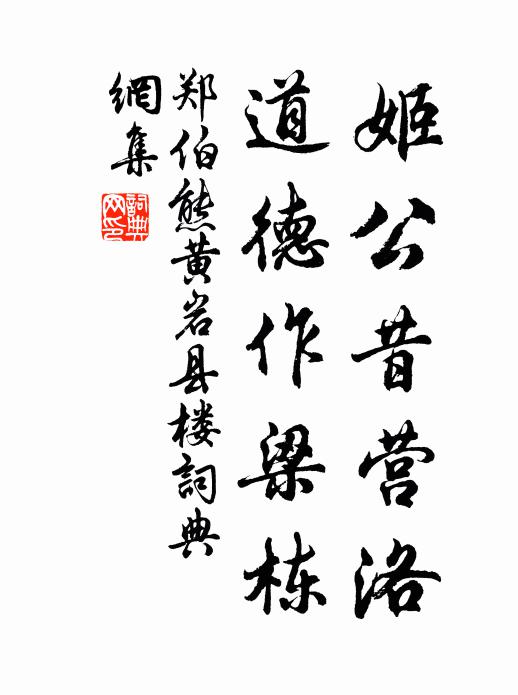 姬公昔营洛
道德作梁栋
郑伯熊黄岩县楼詞典
網集
詞典
网印